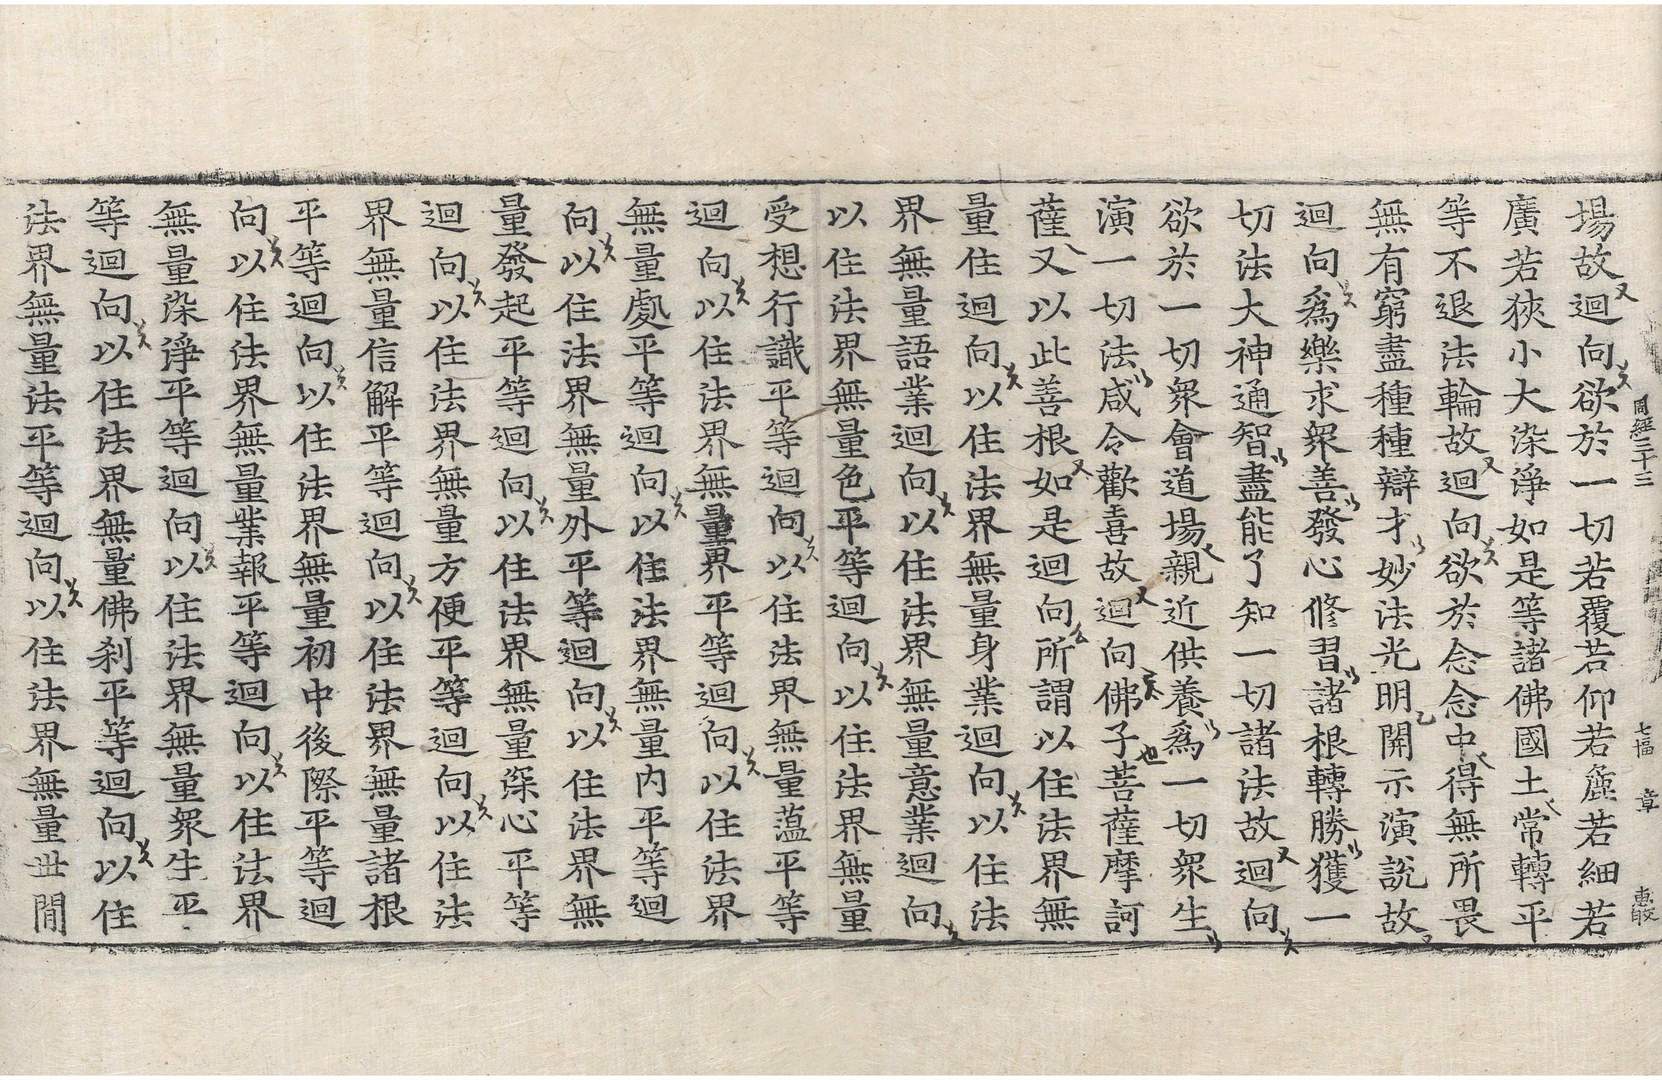 周經三十三 七幅 章
場故迴向欲於一切若覆若仰若麁若細若
廣若狹小大染淨如是等諸佛國土常轉平
等不退法輪故迴向欲於念念中得無所畏
無有窮盡種種辯才妙法光明開示演說故
迴向爲樂求衆善發心修習諸根轉勝獲一
切法大神通智盡能了知一切諸法故迴向
欲於一切衆會道場親近供養爲一切衆生
演一切法咸令歡喜故迴向佛子菩薩摩訶
薩又以此善根如是迴向所謂以住法界無
量住迴向以住法界無量身業迴向以住法
界無量語業迴向以住法界無量意業迴向
以住法界無量色平等迴向以住法界無量
受想行識平等迴向以住法界無量蕴平等
迴向以住法界無量界平等迴向以住法界
無量處平等迴向以住法界無量內平等迴
向以住法界無量外平等迴向以住法界無
量發起平等迴向以住法界無量深心平等
迴向以住法界無量方便平等迴向以住法
界無量信解平等迴向以住法界無量諸根
平等迴向以住法界無量初中後際平等迴
向以住法界無量業報平等迴向以住法界
無量染淨平等迴向以住法界無量衆生平
等迴向以住法界無量佛刹平等迴向以住
法界無量法平等迴向以住法界無量世閒